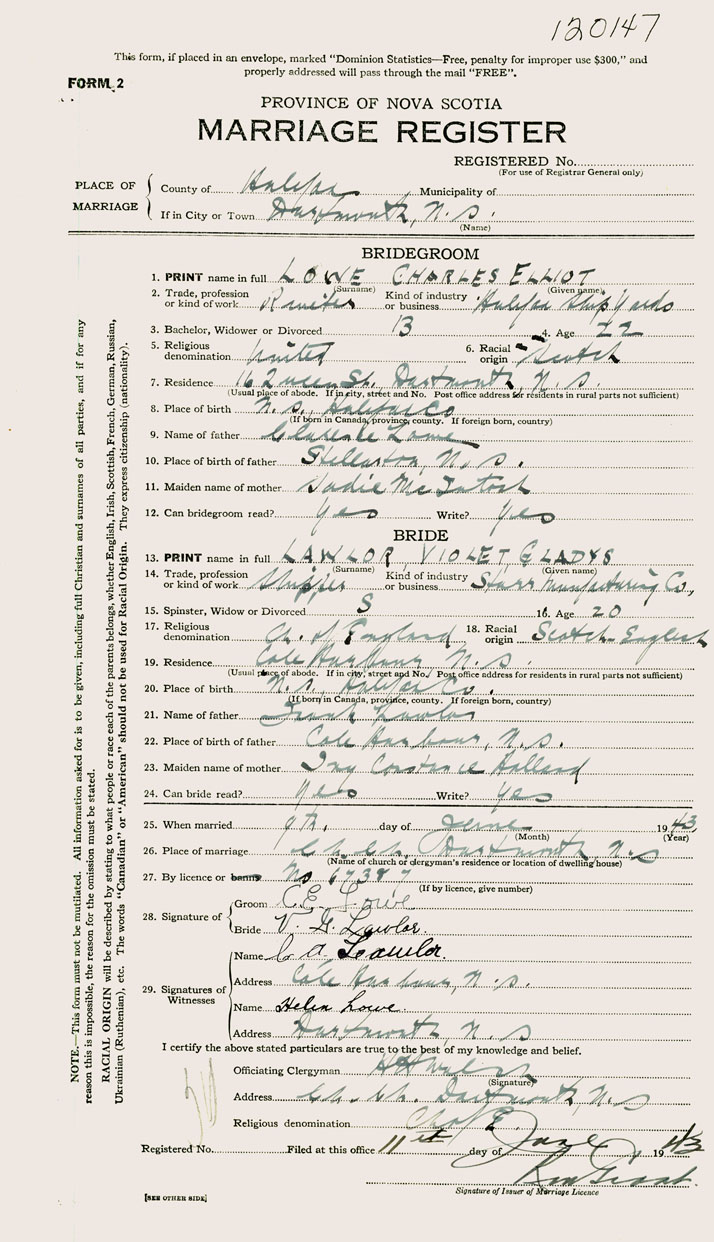 120147
This form, if placed in an envelope, marked "Dominion Statistics—Free, penalty for improper use $300," and
properly addressed will pass through the mail "FREE".
FORM 2
PROVINCE OF NOVA SCOTIA
MARRIAGE REGISTER
REGISTERED No.
(For use of Registrar General only)
PLACE OF MARRIAGE
County of Halifax Municipality of
If in City or Town Dartmouth, N.S.
(Name)
BRIDEGROOM
1. PRINT name in full LOWE CHARLES ELLIOT
(Surname) (Given name)
2. Trade, profession or kind of work Riveter Kind of industry or business Halifax Ship Yards
3. Bachelor, Widower or Divorced B 4. Age 22
5. Religious denomination United 6. Racial origin Scotch
7. Residence 16 Queen St. Dartmouth, N.S.
(Usual place of abode. If in city, street and No. Post office address for residents in rural parts not sufficient)
8. Place of birth N.S. Halifax Co
(If born in Canada, province, county. If foreign born, country)
9. Name of father Clarence Lowe
10. Place of birth of father Stellarton, N.S.
11. Maiden name of mother Sadie McIntosh
12. Can bridegroom read? Yes Write? Yes
BRIDE
13. PRINT name in full LAWLOR, VIOLET GLADYS
(Surname) (Given name)
14. Trade, profession or kind of work Shipper Kind of industry or business Starr Manufacturing Co,
15. Spinster, Widow or Divorced S 16. Age 20
17. Religious denomination Ch. of England 18. Racial origin Scotch-English
19. Residence Cole Harbour N.S.
(Usual place of abode. If in city, street and No. Post office address for residents in rural parts not sufficient)
20. Place of birth N.S. Halifax Co.
(If born in Canada, province, county. If foreign born, country)
21. Name of father Frank Lawlor
22. Place of birth of father Cole Harbour, N.S.
23. Maiden name of mother Constance Holland
24. Can bride read? Yes Write? Yes
25. When married 9th, day of June 1943,
(Month) (Year)
26. Place of marriage Ch. Ch. Dartmouth, N.S
(Name of church or clergyman's residence or location of dwelling house)
27. By licence or banns No 67387
(If by licence, give number)
28. Signature of
Groom C.E. Lowe
Bride V. G. Lawlor.
29. Signatures of Witnesses
Name C A Lawlor.
Address Cole Harbour, N.S.
Name Helen Lowe
Address Dartmouth, N.S
I certify the above stated particulars are true to the best of my knowledge and belief.
Officiating Clergyman
(Signature)
Address Ch. Ch. Dartmouth, N.S
Religious denomination Ch of E.
Registered No. Filed at this office 11th day of June 1943
Signature of Issuer of Marriage Licence
[SEE OTHER SIDE]
NOTE.—This form must not be mutilated. All information asked for is to be given, including full Christian and surnames of all parties, and if for any
reason this is impossible, the reason for the omission must be stated.
RACIAL ORIGIN will be described by stating to what people or race each of the parents belongs, whether English, Irish, Scottish, French, German, Russian,
Ukrainian (Ruthenian), etc. The words "Canadian" or "American" should not be used for Racial Origin. They express citizenship (nationality).